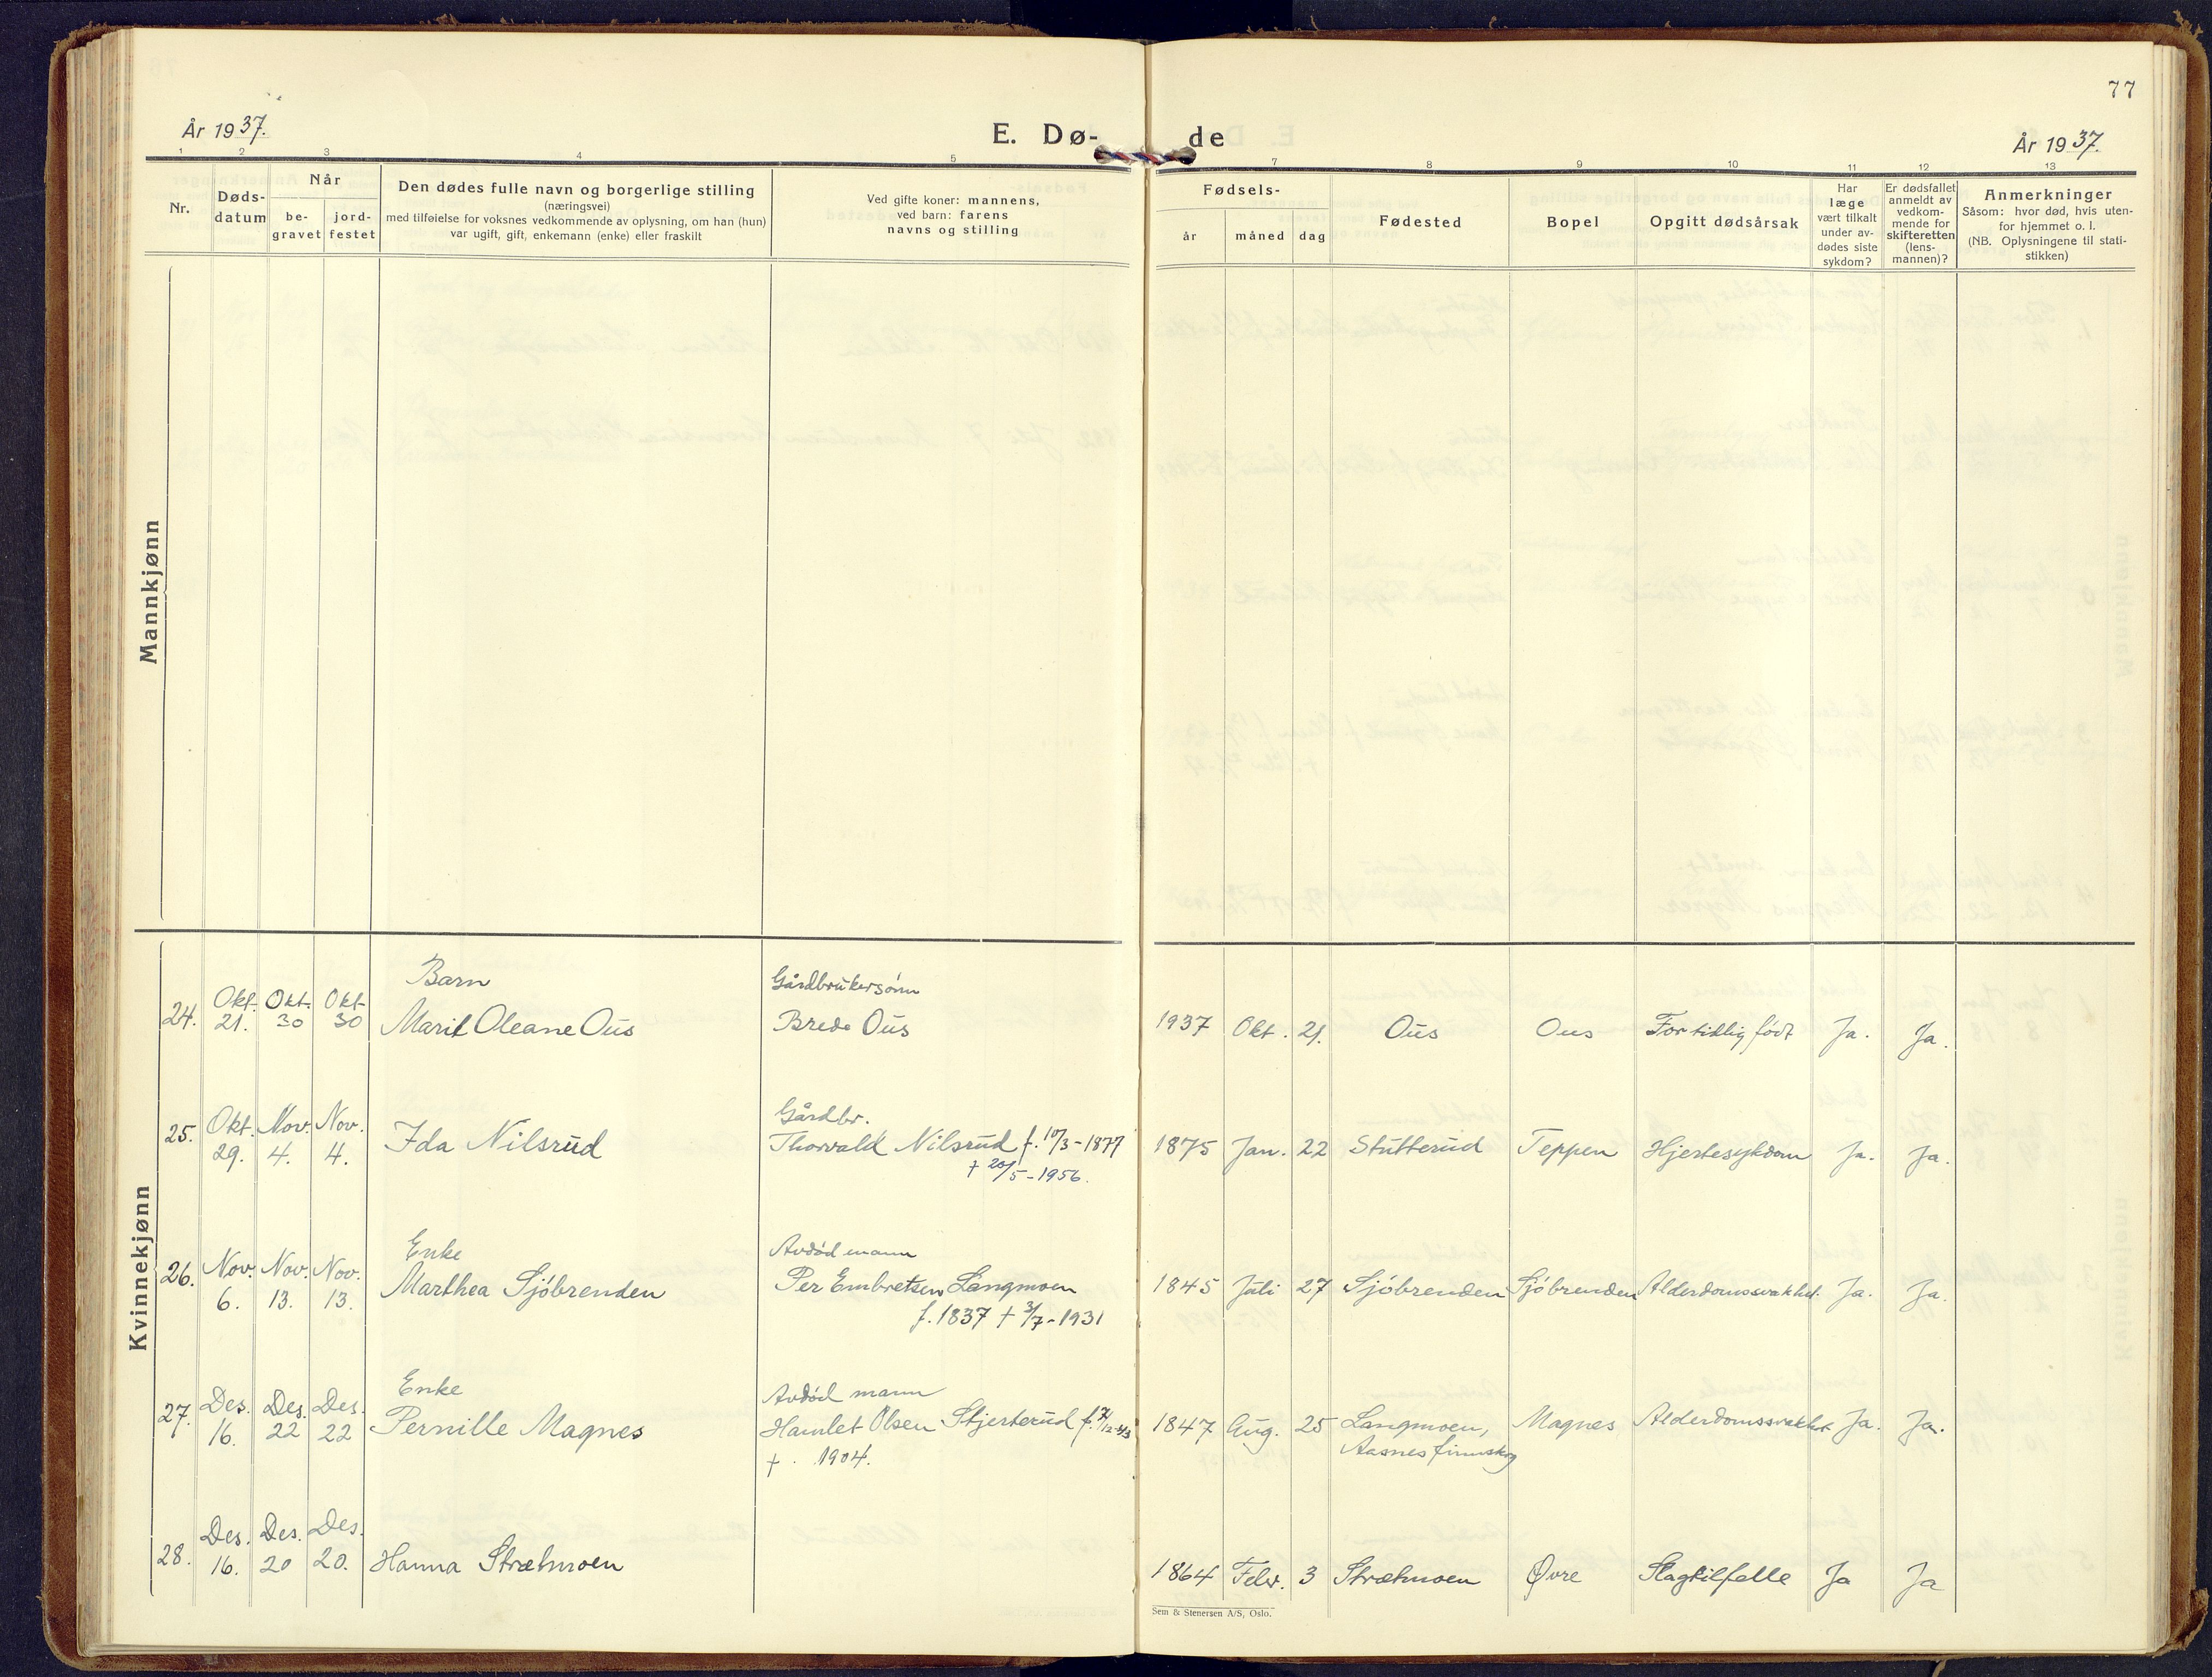 77
År 1937.
E. Dø-
de
År 1937.
1 2 3 4 5 7 8 9 10 11 12 13
Nr.
Døds-
datum
Når
be-
gravet
jord-
festet
Den dødes fulle navn og borgerlige stilling
(næringsvei)
med tilføielse for voksnes vedkommende av oplysning, om han (hun)
var ugift, gift, enkemann (enke) eller fraskilt
Ved gifte koner: mannens,
ved barn: farens
navns og stilling
Fødsels-
år
måned
dag
Fødested
Bopel
Opgitt dødsårsak
Har
læge
vært tilkalt
under av-
dødes siste
sykdom?
Er dødsfallet
anmeldt av
vedkom-
mende for
skifteretten
(lens-
mannen)?
Anmerkninger
Såsom: hvor død, hvis uten-
for hjemmet o. l.
(NB. Oplysningene til stati-
stikken)
Mannkjønn
Kvinnekjønn
Barn Gårdbrukersønn
24. Okt. 21. Okt. 30 Okt 30 Marit Oleane Ous Brede Ous 1937 Okt. 21. Ous Ous For tidlig født Ja. Ja.
Gårdbr.
25. Okt. 29. Nov. 4. Nov. 4. Ida Nilsrud Thorvald Nilsrud f. 10/3-1877 1875 Jan. 22 Stutterud Teppen Hjertesykdom Ja. Ja.
+ 20/5-1956.
Enke Avdød mann
26. Nov. 6. Nov. 13. Nov. 13. Marthea Sjöbrenden Per Embretsen Langmoen 1845 Juli 27 Sjöbrenden Sjöbrenden Alderdomssvakhet. Ja. Ja.
f. 1837 + 3/7-1931
Enke Avdød mann
27. Des. 16. Des. 22 Des. 22 Pernille Magnes Hamlet Olsen Stjerterud 1847 Aug. 25 Langmoen, Magnes Alderdomssvakhet Ja. Ja.
+ 1904. Aasnes finnskog
28. Des. 16. Des. 20 Des. 20. Hanna Strætmoen 1864 Febr. 3 Strætmoen Øvre Slagtilfelle Ja Ja
Sem & Stenersen A/S, Oslo.